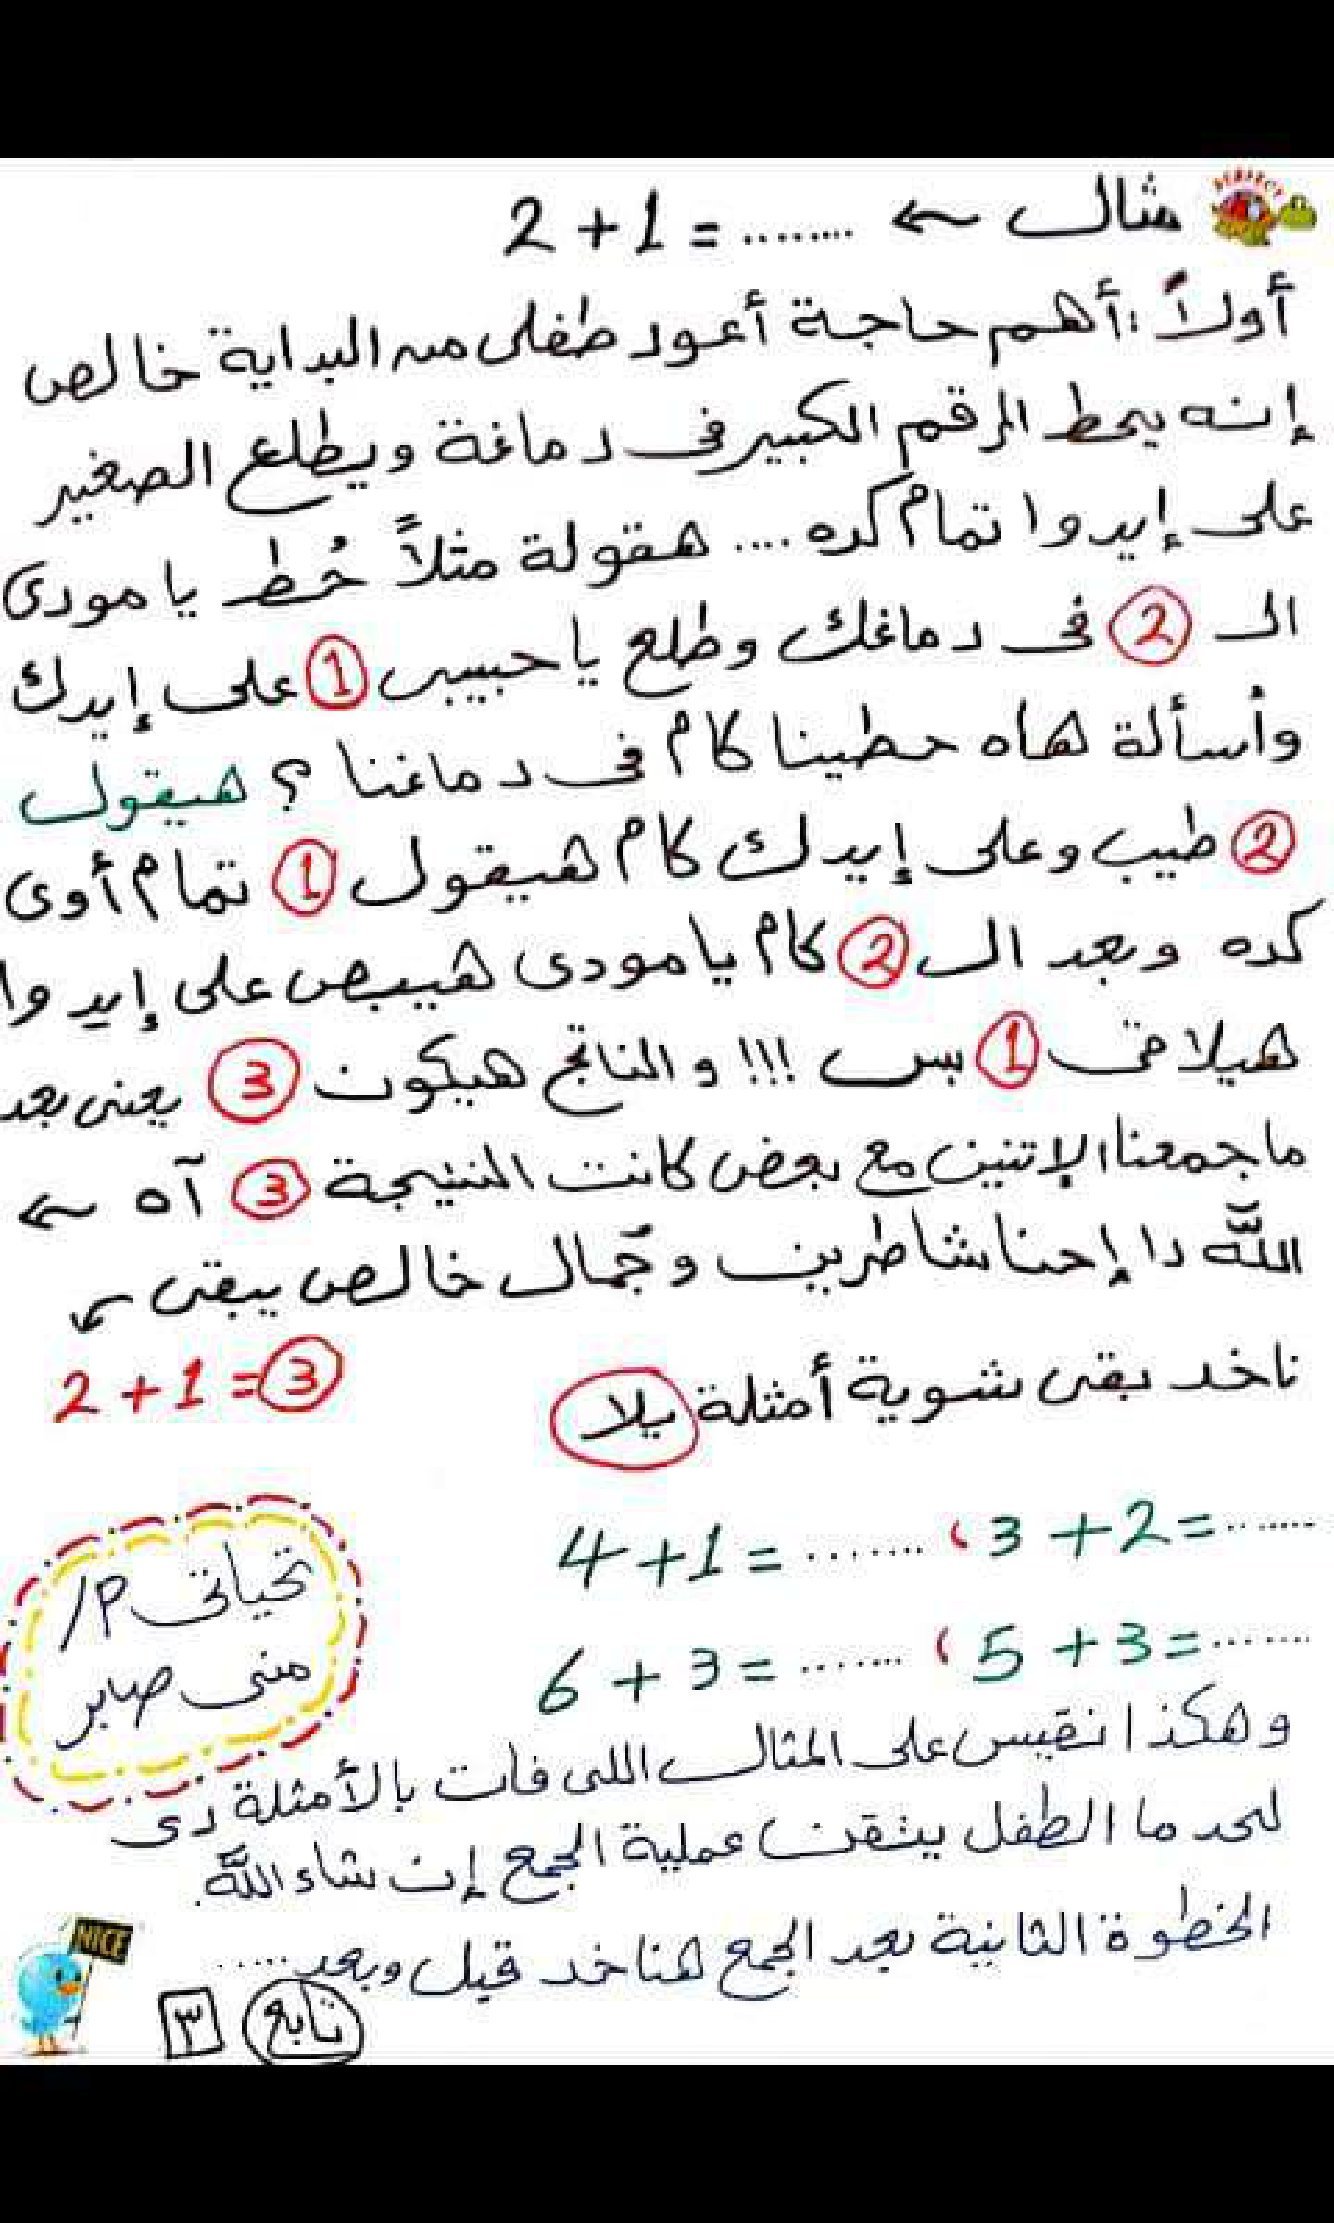 مثال ← 2 + 1 = ........
أولاً : أهم حاجة أعود طفلى من البداية خالص
إنه يحط الرقم الكبير فى دماغة ويطلع الصغير
على إيدوا تمام كده .... هقولة مثلاً حُط يا مودى
الـ 2 فى دماغك وطلع يا حبيبى 1 على إيدك
وأسألة هاه حطينا كام فى دماغنا ؟ هيقول
2 طيب وعلى إيدك كام هيقول 1 تمام أوى
كده وبعد الـ 2 كام يا مودى هيبص على إيدوا
هيلاقى 1 بس !!! والناتج هيكون 3 يعنى بعد
ماجمعنا الإتنين مع بعض كانت النتيجة 3 آه ←
اللَّه دا إحنا شاطرين وجُمال خالص يبقى
2 + 1 = 3
ناخد بقى شوية أمثلة يلا
4 + 1 = ........ ، 3 + 2 = .......
6 + 3 = ........ ، 5 + 3 = .......
تحياتى م/
منى صابر
وهكذا نقيس على المثال اللى فات بالأمثلة دى
لحد ما الطفل يتقن عملية الجمع إن شاء اللَّه.
الخطوة الثانية بعد الجمع هناخد قبل وبعد.....
تابع ٣
NICE